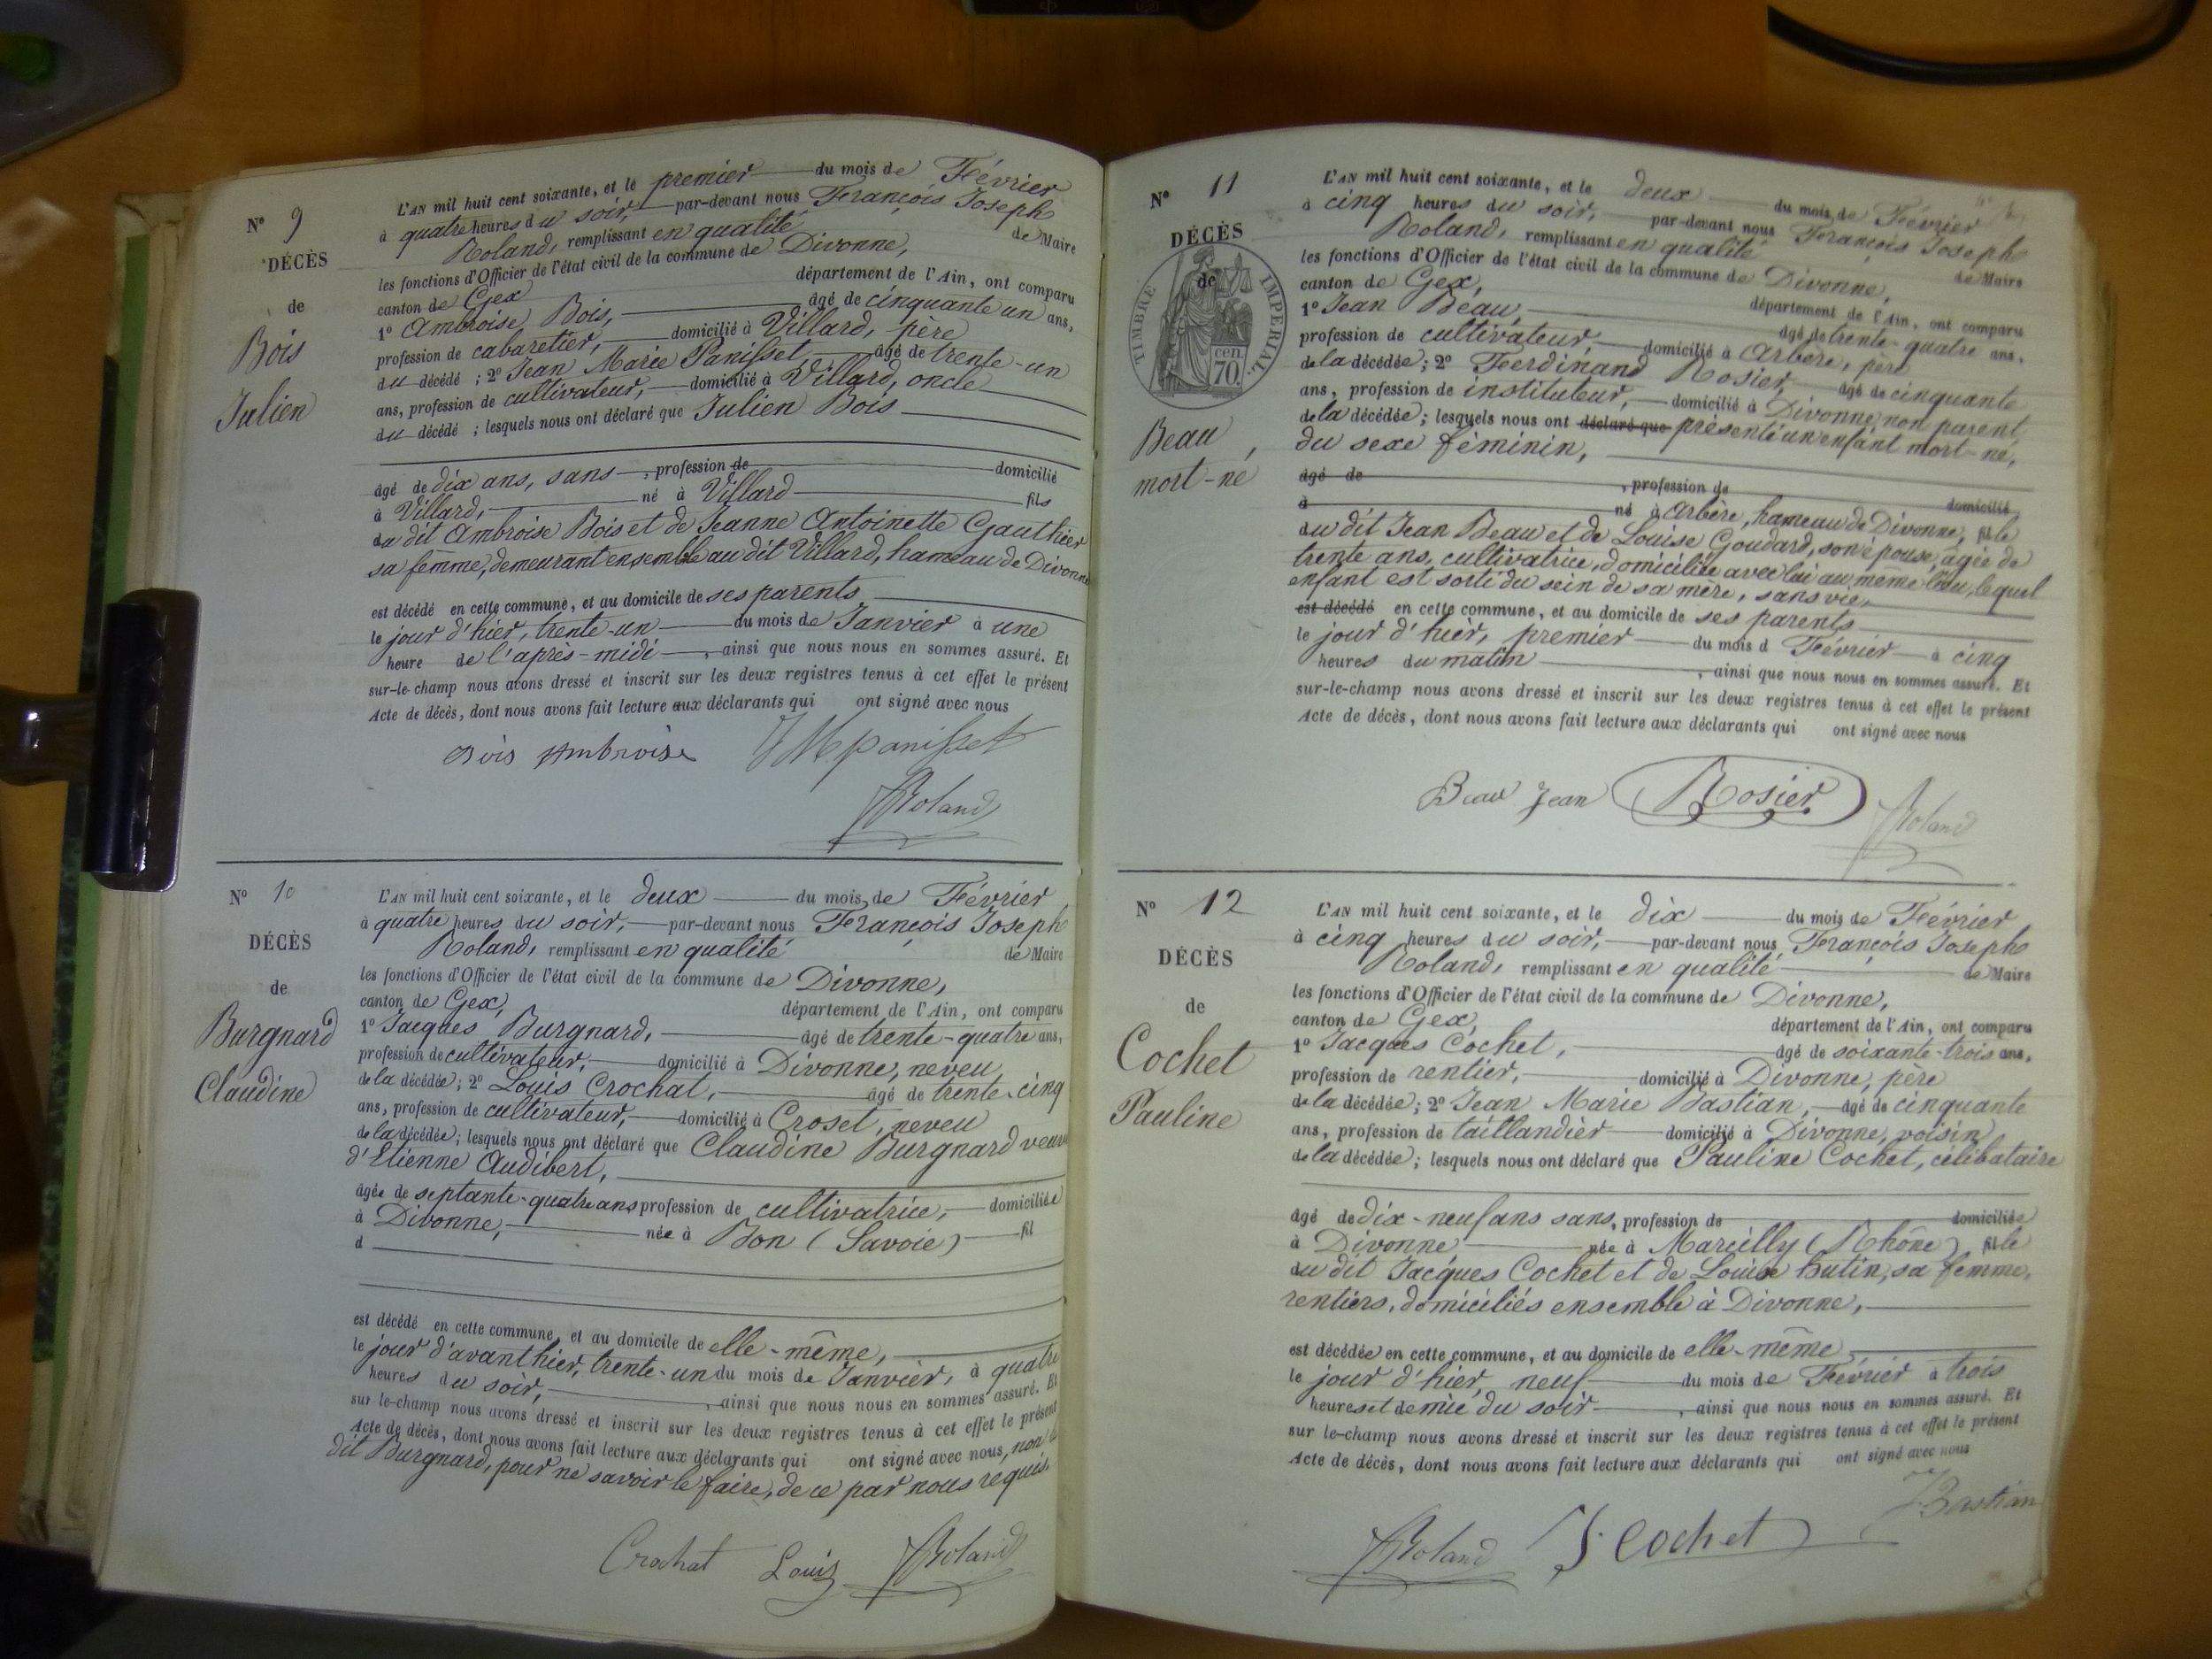 Nº 9
DÉCÈS
de
Bois
Julien
L'AN mil huit cent soixante, et le premier du mois de Février
à quatre heures du soir, par-devant nous François Joseph
Roland, remplissant en qualité de Maire
les fonctions d'Officier de l'état civil de la commune de Divonne,
canton de Gex département de l'Ain, ont comparu
1º Ambroise Bois, âgé de cinquante un ans,
profession de cabaretier, domicilié à Villard, père
du décédé ; 2º Jean Marie Panisset, âgé de trente-un
ans, profession de cultivateur, domicilié à Villard, oncle
du décédé ; lesquels nous ont déclaré que Julien Bois
âgé de dix ans, sans , profession de domicilié
à Villard, né à Villard fils
du dit Ambroise Bois et de Jeanne Antoinette Gauthier
sa femme, demeurant ensemble au dit Villard, hameau de Divonne
est décédé en cette commune, et au domicile de ses parents
le jour d'hier, trente-un du mois de Janvier à une
heure de l'après-midi , ainsi que nous nous en sommes assuré. Et
sur-le-champ nous avons dressé et inscrit sur les deux registres tenus à cet effet le présent
Acte de décès, dont nous avons fait lecture aux déclarants qui ont signé avec nous
Bois Ambroise JM panisset
Roland
Nº 10
DÉCÈS
de
Burgnard
Claudine
L'AN mil huit cent soixante, et le deux du mois de Février
à quatre heures du soir, par-devant nous François Joseph
Roland, remplissant en qualité de Maire
les fonctions d'Officier de l'état civil de la commune de Divonne,
canton de Gex, département de l'Ain, ont comparu
1º Jacques Burgnard, âgé de trente-quatre ans,
profession de cultivateur, domicilié à Divonne, neveu
de la décédée ; 2º Louis Crochat, âgé de trente-cinq
ans, profession de cultivateur, domicilié à Croset, neveu
de la décédée ; lesquels nous ont déclaré que Claudine Burgnard veuve
d'Etienne Audibert,
âgée de septante-quatre ans profession de cultivatrice, domiciliée
à Divonne, née à Bon (Savoie) fil
d
est décédé en cette commune, et au domicile de elle-même,
le jour d'avant hier, trente-un du mois de Janvier, à quatre
heures du soir, , ainsi que nous nous en sommes assuré. Et
sur le-champ nous avons dressé et inscrit sur les deux registres tenus à cet effet le présent
Acte de décès, dont nous avons fait lecture aux déclarants qui ont signé avec nous, non le
dit Burgnard, pour ne savoir le faire, de ce par nous requis.
Crochat Louis Roland
Nº 11
DÉCÈS
de
TIMBRE IMPERIAL
cen.
70.
Beau,
mort-né
L'AN mil huit cent soixante, et le deux du mois de Février
à cinq heures du soir, par-devant nous François Joseph
Roland, remplissant en qualité de Maire
les fonctions d'Officier de l'état civil de la commune de Divonne,
canton de Gex, département de l'Ain, ont comparu
1º Jean Beau, âgé de trente-quatre ans,
profession de cultivateur domicilié à Arbère, père
de la décédée ; 2º Ferdinand Rosier, âgé de cinquante
ans, profession de instituteur, domicilié à Divonne, non parent
de la décédée ; lesquels nous ont déclaré que présenté un enfant mort-né,
du sexe féminin,
âgé de , profession de domicilié
à né à Arbère, hameau de Divonne, fille
du dit Jean Beau et de Louise Goudard, son épouse, âgée de
trente ans, cultivatrice, domiciliée avec lui au même lieu, lequel
enfant est sorti du sein de sa mère, sans vie,
est décédé en cette commune, et au domicile de ses parents
le jour d'hier, premier du mois d Février à cinq
heures du matin , ainsi que nous nous en sommes assuré. Et
sur-le-champ nous avons dressé et inscrit sur les deux registres tenus à cet effet le présent
Acte de décès, dont nous avons fait lecture aux déclarants qui ont signé avec nous
Beau Jean Rosier Roland
Nº 12
DÉCÈS
de
Cochet
Pauline
L'AN mil huit cent soixante, et le dix du mois de Février
à cinq heures du soir, par-devant nous François Joseph
Roland, remplissant en qualité de Maire
les fonctions d'Officier de l'état civil de la commune de Divonne,
canton de Gex, département de l'Ain, ont comparu
1º Jacques Cochet, âgé de soixante-trois ans,
profession de rentier, domicilié à Divonne, père
de la décédée ; 2º Jean Marie Bastian, âgé de cinquante
ans, profession de taillandier domicilié à Divonne, voisin
de la décédée ; lesquels nous ont déclaré que Pauline Cochet, célibataire
âgé de dix-neuf ans sans, profession de domiciliée
à Divonne née à Marcilly (Rhône) fille
du dit Jacques Cochet et de Louise hutin, sa femme,
rentiers, domiciliés ensemble à Divonne,
est décédée en cette commune, et au domicile de elle-même
le jour d'hier, neuf du mois de Février à trois
heures et demie du soir , ainsi que nous nous en sommes assuré. Et
sur le-champ nous avons dressé et inscrit sur les deux registres tenus à cet effet le présent
Acte de décès, dont nous avons fait lecture aux déclarants qui ont signé avec nous
Bastian
Roland J. Cochet